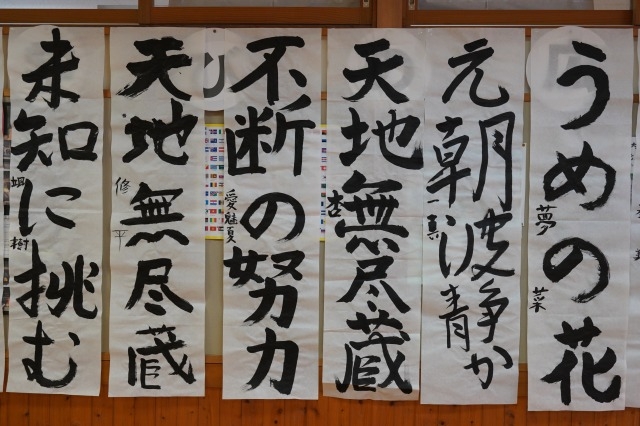 うめの花
夢菜
元朝波静か
一真
天地無尽蔵
杏
不断の努力
愛魅夏
天地無尽蔵
修平
未知に挑む
樹